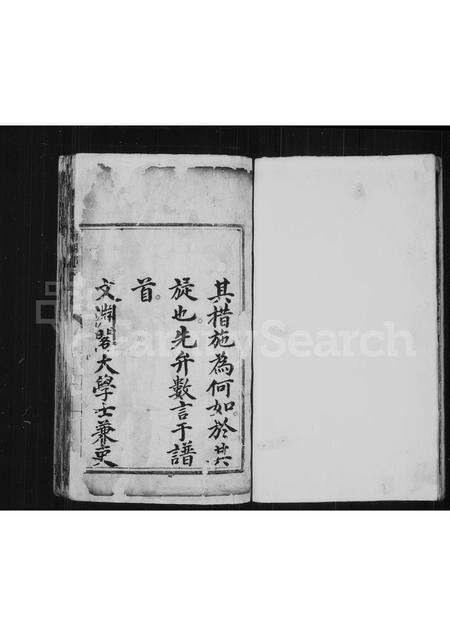 其措施為何如於其
旋也先弁數言于譜
首
文淵閣大學士兼吏
FamilySearch